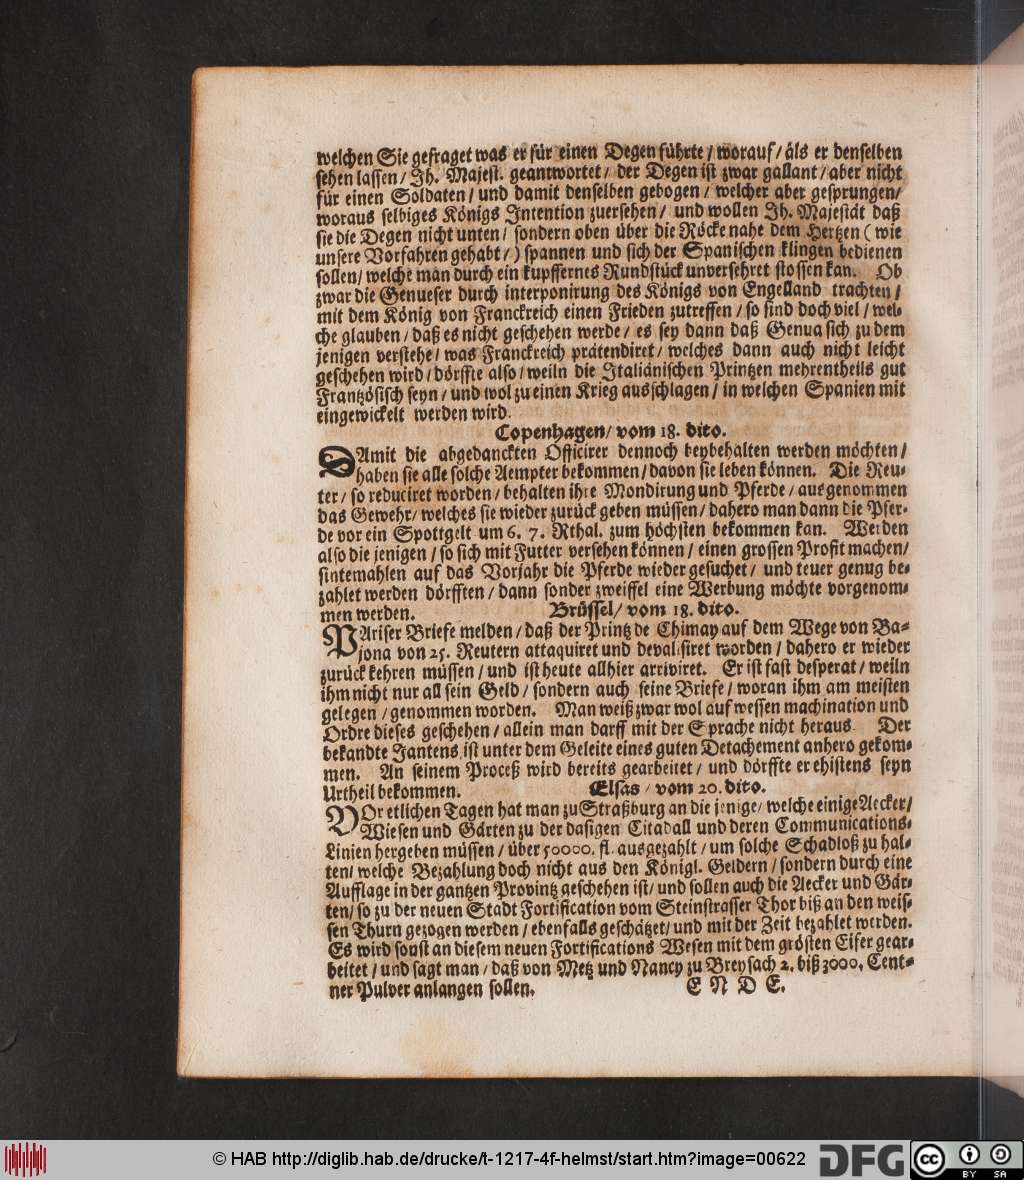 welchen Sie gefraget was er für einen Degen führte / worauf / als er denselben
sehen lassen / Ih. Majest. geantwortet / der Degen ist zwar gallant / aber nicht
für einen Soldaten / und damit denselben gebogen / welcher aber gesprungen /
woraus selbiges Königs Intention zuersehen / und wollen Ih. Majestät daß
sie die Degen nicht unten / sondern oben über die Röcke nahe dem Hertzen ( wie
unsere Vorfahren gehabt / ) spannen und sich der Spanischen klingen bedienen
sollen / welche man durch ein kupffernes Rundstück unversehret stossen kan. Ob
zwar die Genueser durch interponirung des Königs von Engelland trachten /
mit dem König von Franckreich einen Frieden zutreffen / so sind doch viel / wel-
che glauben / daß es nicht geschehen werde / es sey dann daß Genua sich zu dem
jenigen verstehe / was Franckreich prätendiret / welches dann auch nicht leicht
geschehen wird / dörffte also / weiln die Italiänischen Printzen mehrentheils gut
Frantzösisch seyn / und wol zu einen Krieg ausschlagen / in welchen Spanien mit
eingewickelt werden wird.
Copenhagen / vom 18. dito.
DAmit die abgedanckten Officirer dennoch beybehalten werden möchten /
haben sie alle solche Aempter bekommen / davon sie leben können. Die Reu-
ter / so reduciret worden / behalten ihre Mondirung und Pferde / ausgenommen
das Gewehr / welches sie wieder zurück geben müssen / dahero man dann die Pfer-
de vor ein Spottgelt um 6. 7. Rthal. zum höchsten bekommen kan. Werden
also die jenigen / so sich mit Futter versehen können / einen grossen Profit machen /
sintemahlen auf das Vorjahr die Pferde wieder gesuchet / und teuer genug be-
zahlet werden dörfften / dann sonder zweiffel eine Werbung möchte vorgenom-
men werden. Brüssel / vom 18. dito.
PAriser Briefe melden / daß der Printz de Chimay auf dem Wege von Ba-
jona von 25. Reutern attaquiret und devalisiret worden / dahero er wieder
zurück kehren müssen / und ist heute allhier arriviret. Er ist fast desperat / weiln
ihm nicht nur all sein Geld / sondern auch seine Briefe / woran ihm am meisten
gelegen / genommen worden. Man weiß zwar wol auf wessen machination und
Ordre dieses geschehen / allein man darff mit der Sprache nicht heraus. Der
bekandte Jantens ist unter dem Geleite eines guten Detachement anhero gekom-
men. An seinem Proceß wird bereits gearbeitet / und dörffte er ehistens seyn
Urtheil bekommen. Elsas / vom 20. dito.
VOr etlichen Tagen hat man zu Straßburg an die jenige / welche einige Aecker /
Wiesen und Gärten zu der dasigen Citadall und deren Communications-
Linien hergeben müssen / über 50000. fl. ausgezahlt / um solche Schadloß zu hal-
ten / welche Bezahlung doch nicht aus den Königl. Geldern / sondern durch eine
Aufflage in der gantzen Provintz geschehen ist / und sollen auch die Aecker und Gär-
ten / so zu der neuen Stadt Fortification vom Steinstrasser Thor biß an den weis-
sen Thurn gezogen werden / ebenfalls geschätzet / und mit der Zeit bezahlet werden.
Es wird sonst an diesem neuen Fortifications Wesen mit dem grösten Eifer gear-
beitet / und sagt man / daß von Metz und Nancy zu Breysach 2. biß 3000. Cent-
ner Pulver anlangen sollen. E N D E.
© HAB http://diglib.hab.de/drucke/t-1217-4f-helmst/start.htm?image=00622
DFG
cc BY SA